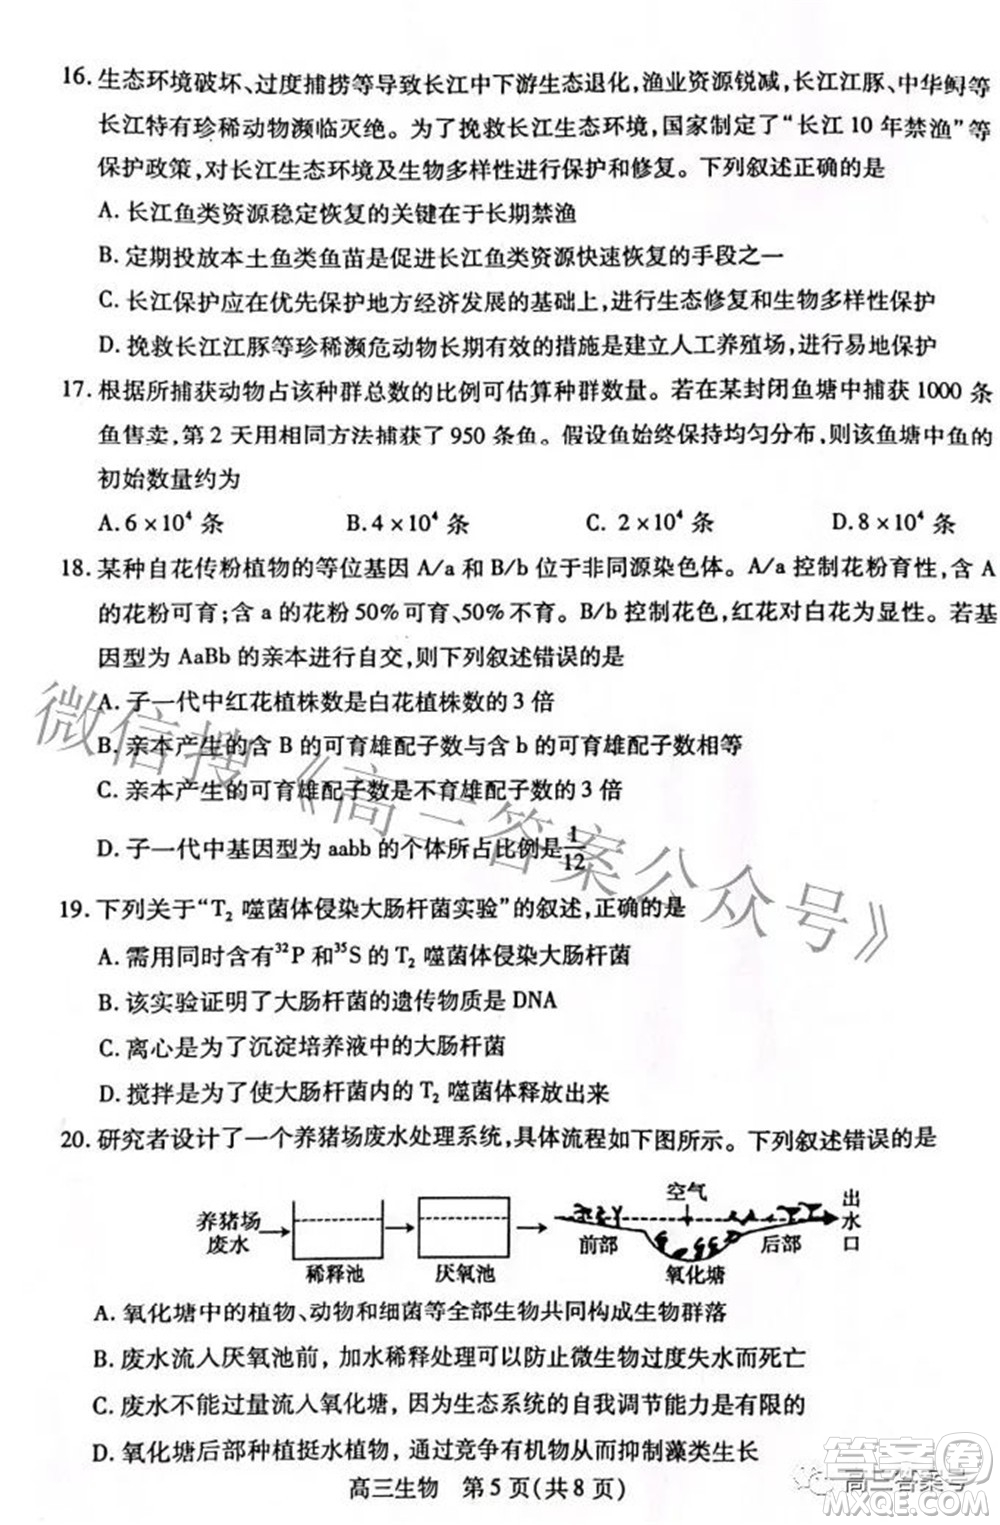 16. 生态环境破坏、过度捕捞等导致长江中下游生态退化,渔业资源锐减,长江江豚、中华鲟等
长江特有珍稀动物濒临灭绝。为了挽救长江生态环境,国家制定了“长江 10 年禁渔”等
保护政策,对长江生态环境及生物多样性进行保护和修复。下列叙述正确的是
A. 长江鱼类资源稳定恢复的关键在于长期禁渔
B. 定期投放本土鱼类鱼苗是促进长江鱼类资源快速恢复的手段之一
C. 长江保护应在优先保护地方经济发展的基础上,进行生态修复和生物多样性保护
D. 挽救长江江豚等珍稀濒危动物长期有效的措施是建立人工养殖场,进行易地保护
17. 根据所捕获动物占该种群总数的比例可估算种群数量。若在某封闭鱼塘中捕获 1000 条
鱼售卖,第 2 天用相同方法捕获了 950 条鱼。假设鱼始终保持均匀分布,则该鱼塘中鱼的
初始数量约为
A. 6×10⁴ 条 B. 4×10⁴ 条 C. 2×10⁴ 条 D. 8×10⁴ 条
18. 某种自花传粉植物的等位基因 A/a 和 B/b 位于非同源染色体。A/a 控制花粉育性,含 A
的花粉可育;含 a 的花粉 50%可育、50%不育。B/b 控制花色,红花对白花为显性。若基
因型为 AaBb 的亲本进行自交,则下列叙述错误的是
A. 子一代中红花植株数是白花植株数的 3 倍
B. 亲本产生的含 B 的可育雄配子数与含 b 的可育雄配子数相等
C. 亲本产生的可育雄配子数是不育雄配子数的 3 倍
D. 子一代中基因型为 aabb 的个体所占比例是 1/12
19. 下列关于“T₂ 噬菌体侵染大肠杆菌实验”的叙述,正确的是
A. 需用同时含有³²P 和³⁵S 的 T₂ 噬菌体侵染大肠杆菌
B. 该实验证明了大肠杆菌的遗传物质是 DNA
C. 离心是为了沉淀培养液中的大肠杆菌
D. 搅拌是为了使大肠杆菌内的 T₂ 噬菌体释放出来
20. 研究者设计了一个养猪场废水处理系统,具体流程如下图所示。下列叙述错误的是
养猪场
废水
稀释池
厌氧池
前部
空气
氧化塘
后部
出
水
口
A. 氧化塘中的植物、动物和细菌等全部生物共同构成生物群落
B. 废水流入厌氧池前,加水稀释处理可以防止微生物过度失水而死亡
C. 废水不能过量流入氧化塘,因为生态系统的自我调节能力是有限的
D. 氧化塘后部种植挺水植物,通过竞争有机物从而抑制藻类生长
高三生物 第 5 页(共 8 页)
微信搜《高三答案公众号》
高三答案号
答案圈
MXQE.COM